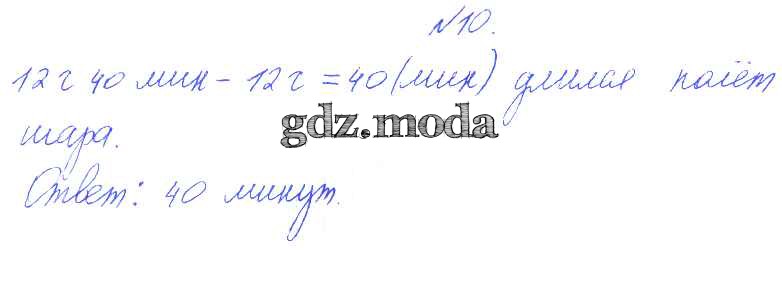 №10.
12 ч 40 мин - 12 ч = 40 (мин) длился полёт
шара.
gdz.moda
Ответ: 40 минут.